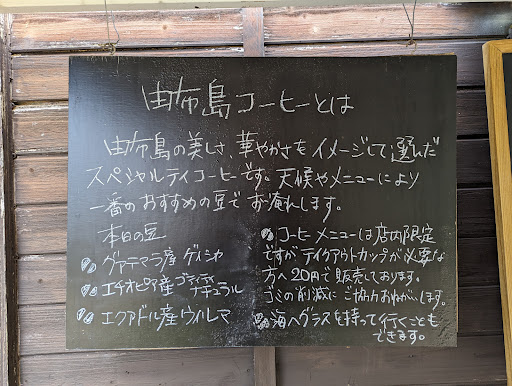 由布島コーヒーとは
由布島の美しさ、華やかさをイメージして選んだ
スペシャルティコーヒーです。天候やメニューにより
一番のおすすめの豆でお淹れします。
本日の豆
グァテマラ産 ゲイシャ
エチオピア産 ゴティティ ナチュラル
エクアドル産 ウイルマ
コーヒーメニューは店内限定
ですがテイクアウトカップが必要な
方へ20円で販売しております。
ゴミの削減にご協力おねがいします。
海へグラスを持って行くことも
できます。